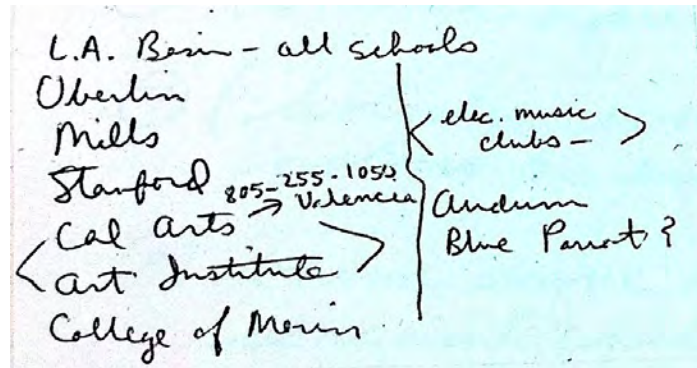 L.A. Basin - all schools
Oberlin
Mills
Stanford
805-255-1050
Cal Arts → Valencia
< Art Institute >
College of Marin
< elec. music
clubs - >
Audium
Blue Parrot?